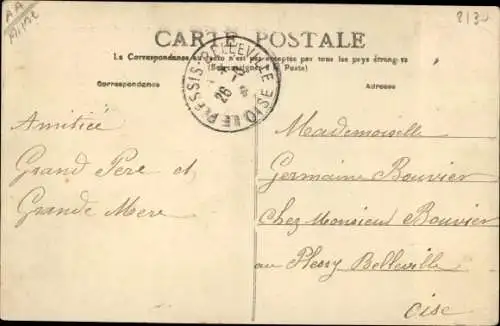 CARTE POSTALE
La Correspondance au recto n'est pas acceptée par tous les pays étrangers
(Se renseigner à la Poste)
Correspondance
Adresse
LE PLESSIS-BELLEVILLE OISE
26
Amitiée
Grand Père et
Grande Mère
Mademoiselle
Germaine Bouvier
Chez Monsieur Bouvier
au Plessy Belleville
Oise